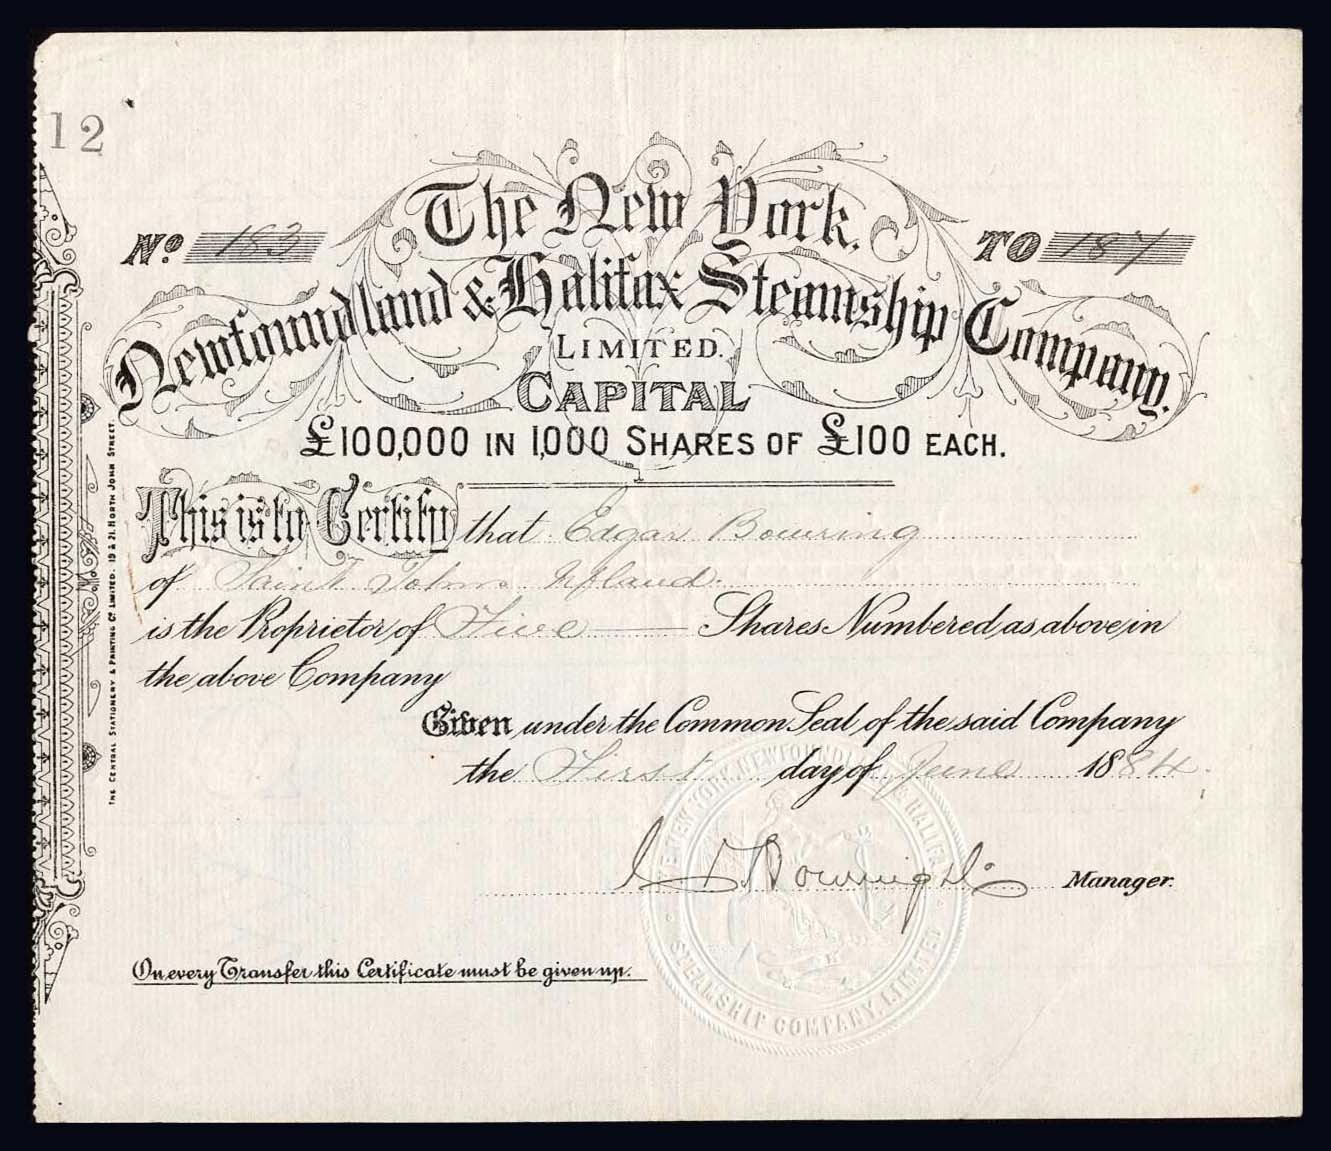 12
The New York,
No. 183 TO 187
Newfoundland & Halifax Steamship Company.
LIMITED.
CAPITAL
£100,000 IN 1,000 SHARES OF £100 EACH.
This is to Certify that Edgar Bowring
of Saint Johns Nfland.
is the Proprietor of Five Shares Numbered as above in
the above Company
Given under the Common Seal of the said Company
the First day of June 1884.
Bowring Manager.
On every Transfer this Certificate must be given up.
THE CENTRAL STATIONERY & PRINTING Co LIMITED. 19 & 21. NORTH JOHN STREET.
THE NEW YORK, NEWFOUNDLAND & HALIFAX
STEAMSHIP COMPANY, LIMITED